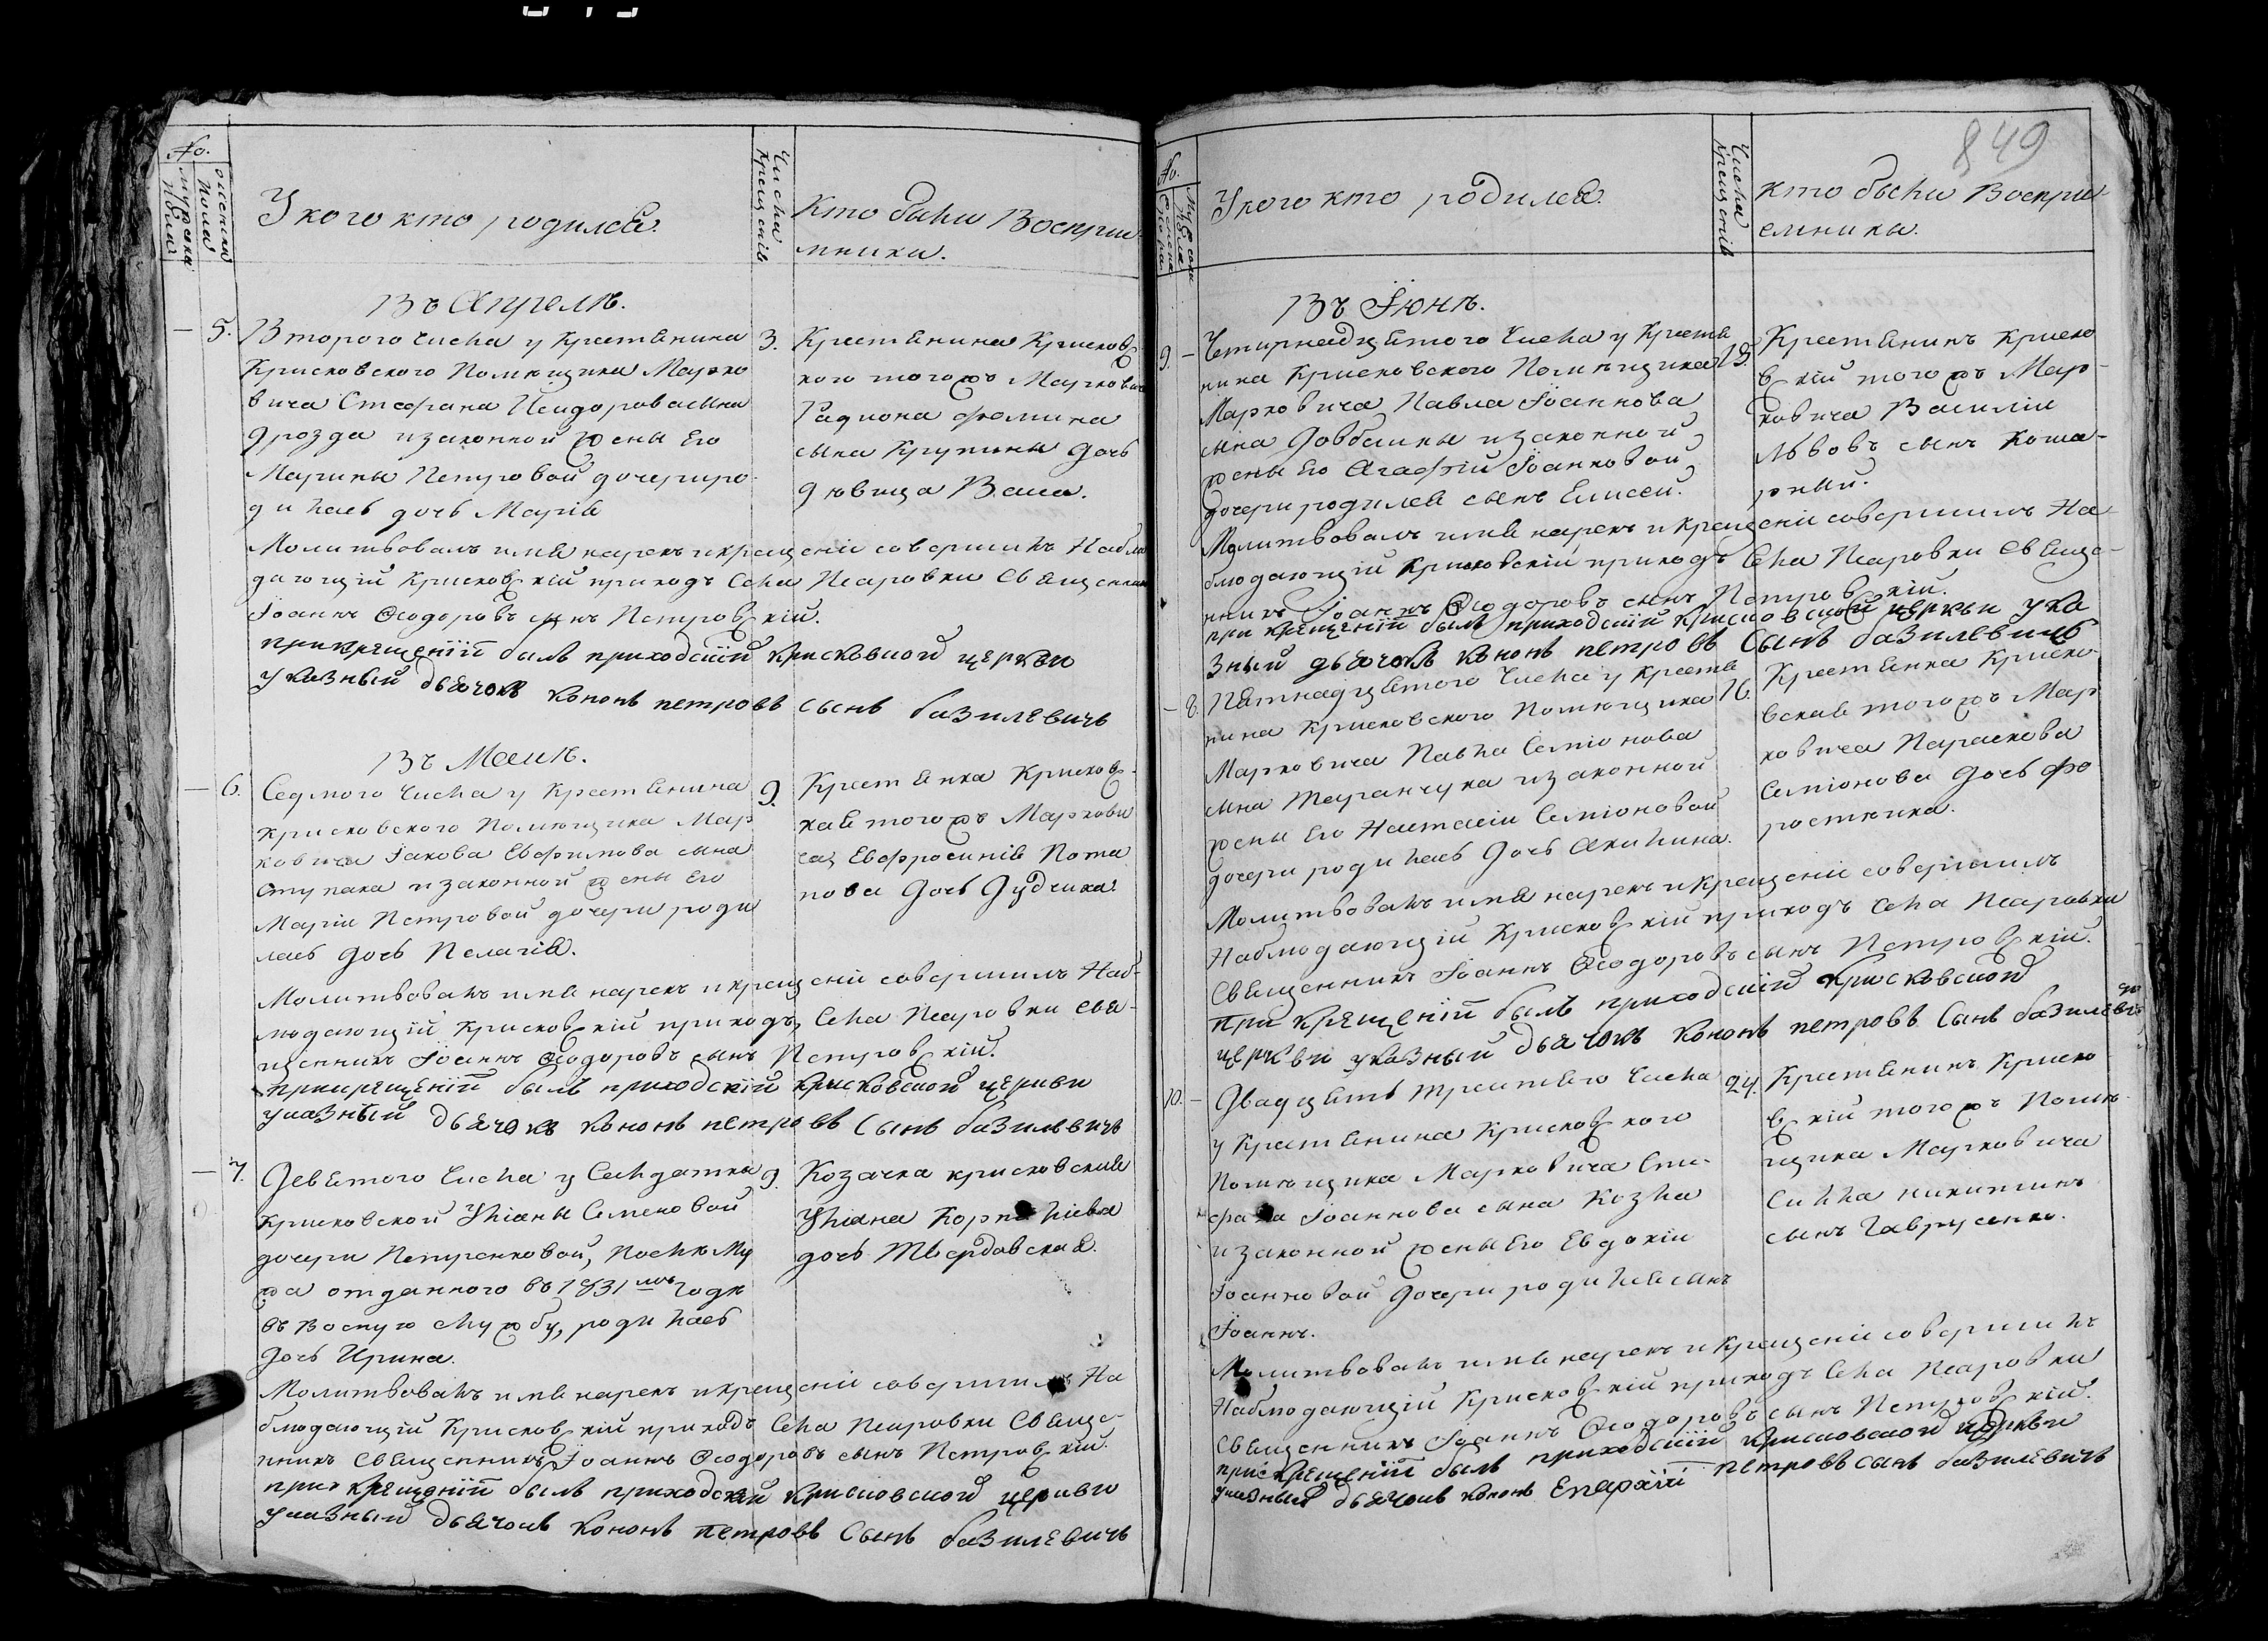 849
No.
мужска пола
женскаго пола
У кого кто родился.
Числа крещенія
Кто были Воспріи
мники.
Въ Апрелѣ.
5. Второго числа у крестьянина
Крисковского Помѣщика Марко
вича Стефана Исидорова сына
Дрозда и законной жены Его
Марины Петровой дочери ро
дилась дочь Марія
3.
Крестьянина Крисковс
кого тогожъ Маркович
Радиона Фомина
сына Крупины дочь
дѣвица Васса.
Молитвовалъ имя нарекъ и крещеніи совершилъ Наблю
дающій Крисковскій приходъ Села Псаровки Священни
Іоаннъ Ѳеодоровъ сынъ Петровскій.
при крещеніи былъ приходскій крисковской церкви
указный дьячокъ кононъ петровъ сынъ базилевичь
Въ Маии.
6. Седмого числа у Крестьянина
Крисковского Помѣщика Мар
ковича Іакова Евфимова сына
Ступака и законной жены Его
Маріи Петровой дочери роди
лась дочь Пелагія.
9.
Крестьянка Крисковс-
кая тогожъ Маркови
ча Евфросинія Пота
пова дочь Дудчика.
Молитвовалъ имя нарекъ и крещеніи совершилъ Наб-
людающій Крисковскій приходъ Села Псаровки Свя-
щенникъ Іоаннъ Ѳеодоровъ сынъ Петровскій.
при крещеніи былъ приходскій крисковской церкви
указный дьячокъ кононъ петровъ сынъ базилевичь
7. Девятого числа у Салдатки
Крисковской Уліаны Семеновой
дочери Петренковой, послѣ му
жа отданного въ 1831мъ годѣ
въ воєную службу, родилась
дочь Ирина.
9.
Козачка крисковская
Уліана Корнилієва
дочь Твердовская.
Молитвовалъ имя нарекъ и крещеніи совершилъ На
блюдающій Крисковскій приходъ Села Псаровки Свяще-
нникъ Священникъ Іоаннъ Ѳеодоровъ сынъ Петровскій.
при крещеніи былъ приходскій крисковской церкви
указный дьячокъ кононъ петровъ сынъ базилевичь
No.
У кого кто родился.
Числа крещенія
Кто были Воспри-
емники.
Въ Іюнѣ.
9. Четирнадцятого числа у Крестья
нина Крисковского Помѣщика
Марковича Павла Іоаннова
сына Довбыши и законной
жены Его Агафіи Іоанновой
дочери родился сынъ Елисей.
15.
Крестьянинъ Криско
вскій тогожъ Мар-
ковича Василій
Львовъ сынъ Коша-
рный.
Молитвовалъ имя нарекъ и крещеніи совершилъ На-
блюдающій Крисковскій приходъ Села Псаровки Свяще-
нникъ Іоаннъ Ѳеодоровъ сынъ Петровскій.
при крещеніи былъ приходскій крисковской церкви ука
зный дьячокъ кононъ петровъ сынъ базилевичь
8. Пятнадцятого числа у Крестья
нина Крисковского Помѣщика
Марковича Павла Семіонова
сына Таранчука и законной
жены Его Настасіи Семіоновой
дочери родилась дочь Акилина.
16.
Крестьянка Криско-
вская тогожъ Мар
ковича Параскева
Семіонова дочь Фо
ростяника.
Молитвовалъ имя нарекъ и крещеніи совершилъ
Наблюдающій Крисковскій приходъ Села Псаровки
Священникъ Іоаннъ Ѳеодоровъ сынъ Петровскій.
при крещеніи былъ приходскій крисковской
церкви указный дьячокъ кононъ петровъ сынъ базилевичь
10. Двадцять третьего числа
у Крестьянина Крисковского
Помѣщика Марковича Сте-
фана Іоаннова сына Козла
и законной жены Его Евдокіи
Іоанновой дочери родился сынъ
Іоаннъ.
24.
Крестьянинъ Криско
вскій тогожъ Помѣ-
щика Марковича
Силла никитинъ
сынъ Гаврусенко.
Молитвовалъ имя нарекъ и крещеніи совершилъ
Наблюдающій Крисковскій приходъ Села Псаровки
Священникъ Іоаннъ Ѳеодоровъ сынъ Петровскій.
при крещеніи былъ приходскій крисковской церкви
указный дьячокъ кононъ Епархіи петровъ сынъ базилевичь